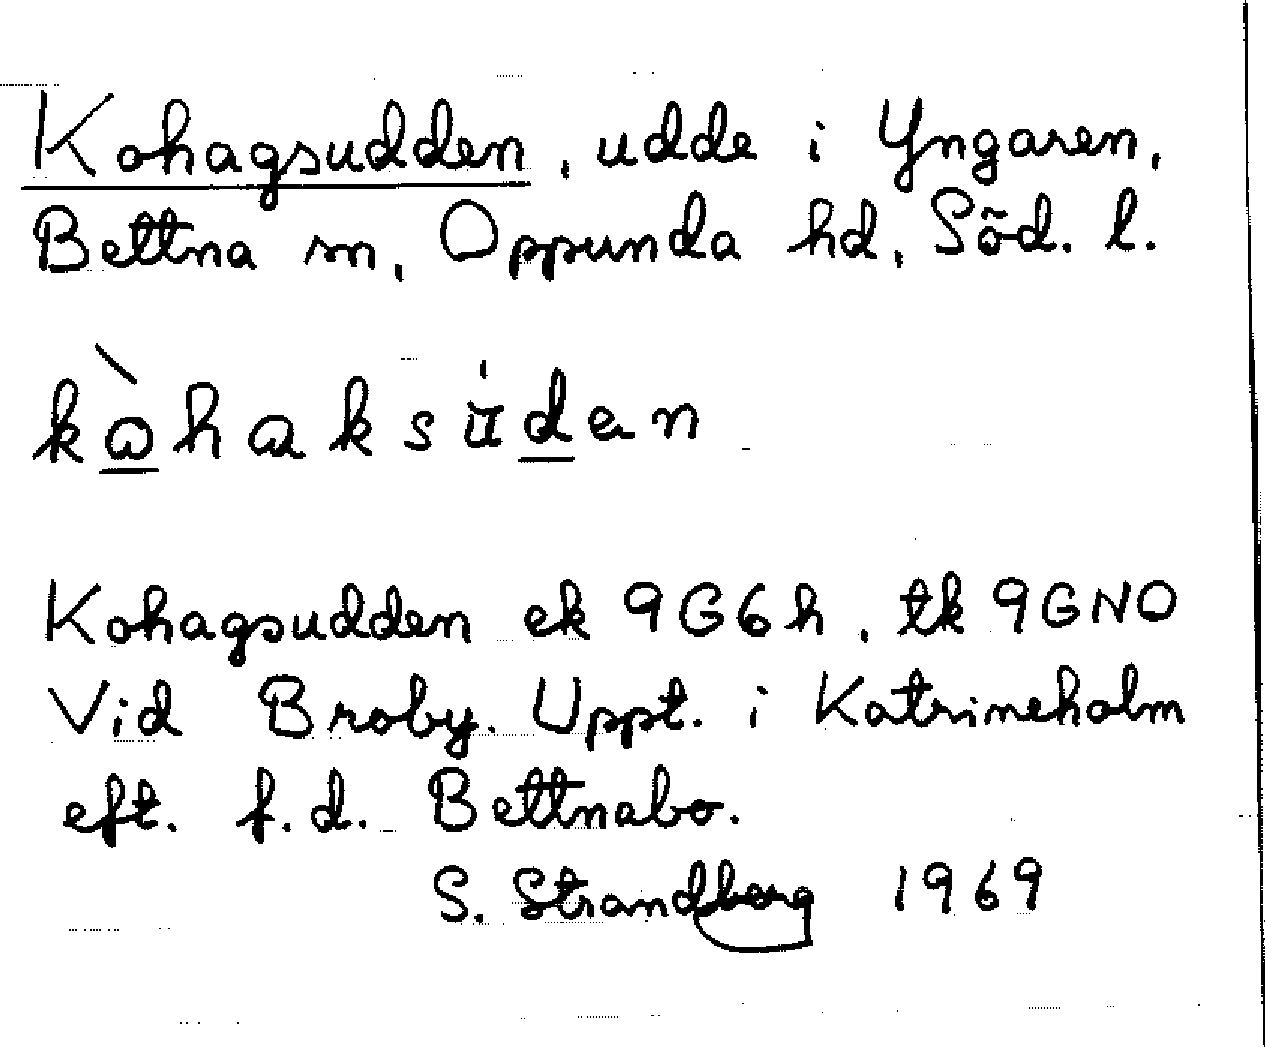 Kohagsudden, udde i Yngaren,
Bettna sn, Oppunda hd, Söd. l.
kòhaksu̇den
Kohagsudden ek 9G6h, tk 9GNO
Vid Broby. Uppt. i Katrineholm
eft. f.d. Bettnabo.
S. Strandberg 1969